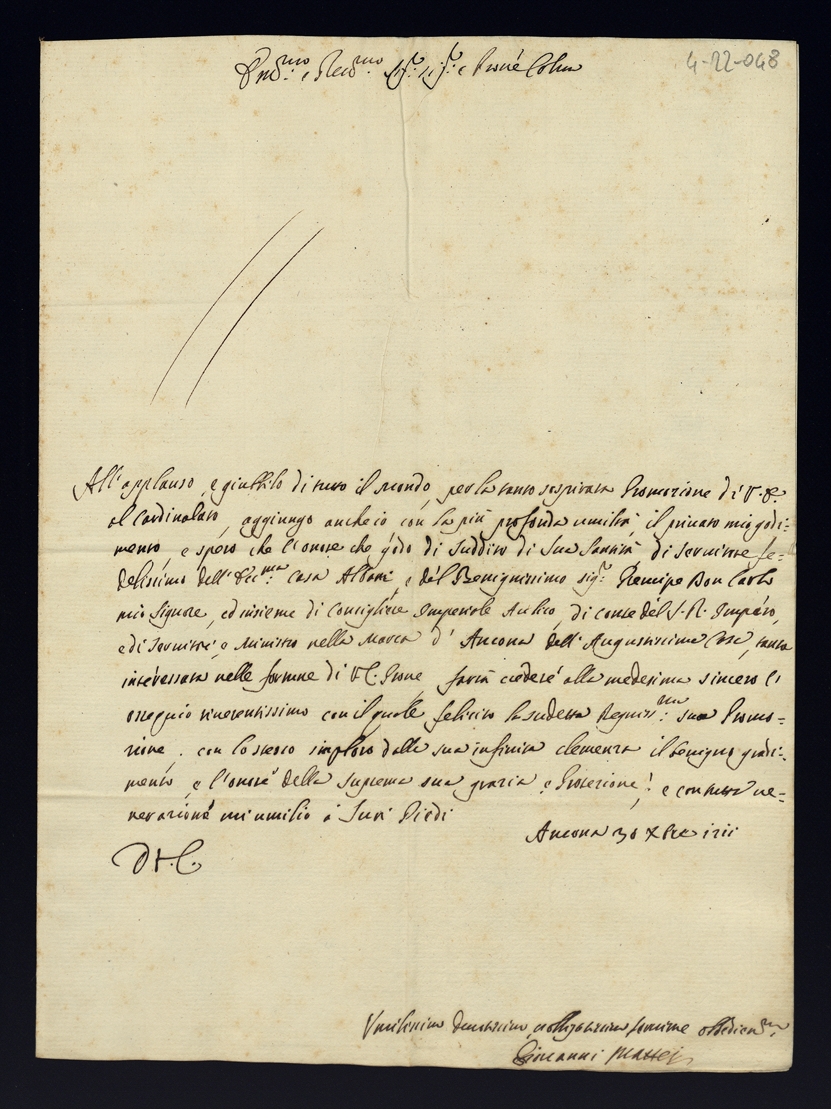 Em.mo e Rev.mo Sig.r Sig.r e Prone Colmo
4-22-048
All'applauso, e giubbilo di tutto il Mondo, per la tanto sospirata Promozione di V.E.
al Cardinalato, aggiungo anch'io con la più profonda umiltà, il privato mio godi=
mento, e spero che l'onore che godo di Suddito di Sua Santità di Servitore fe=
delissimo dell'Ecc.ma Casa Albani, e del Benignissimo Sig.r Prencipe Don Carlo
mio Signore, ed insieme di Consigliere Imperiale Aulico, di Conte del S. R. Impero,
e di Servitore e Ministro nella Marca d'Ancona dell'Augustissima Casa, tanto
interessata nelle fortune di V.E. Prone, farà credere alla medesima sincero l'
osseguio riverentissimo con il quale felicito la sudetta Degniss.ma sua Promo=
zione, con lo stesso imploro dalla sua infinita clemenza il benigno gradi=
mento, e l'onore della suprema sua grazia, e Protezione; e con tutta ve=
nerazione mi umilio a Suoi Piedi
Ancona 30 Xbre 1711
D.V.E.
Umilissimo Devotissimo, et obligatissimo servitore obbedien.mo
Giovanni Maffei